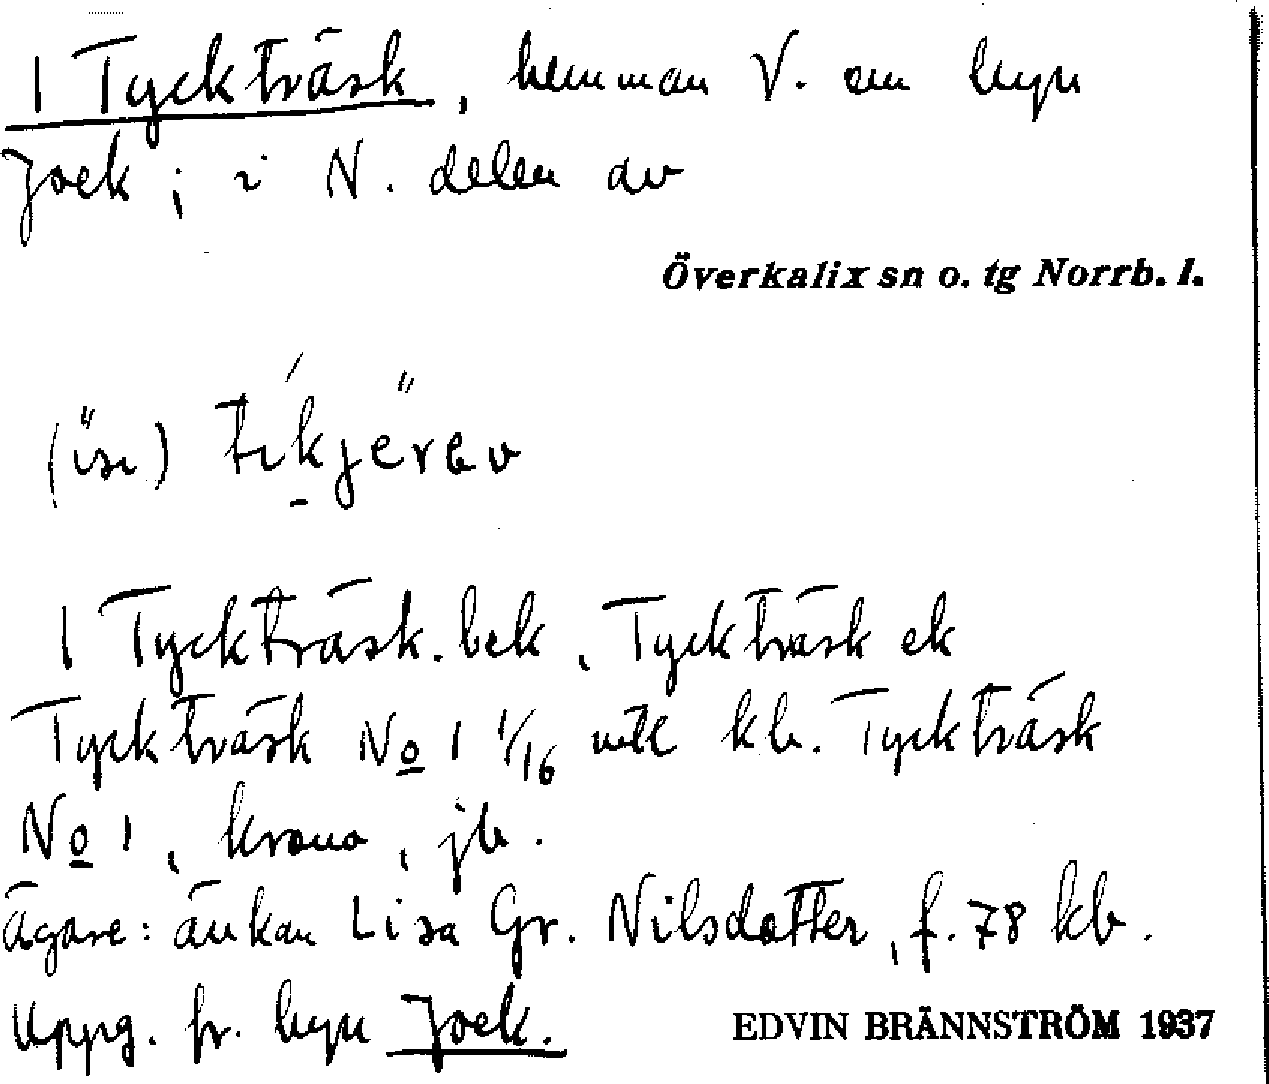 1 Tyckträsk, hemman V. om byn
Jock; i N. delen av
Överkalix sn o. tg Norrb. l.
1 Tyckträsk. bek, Tyckträsk ek
Tyckträsk No 1 1/16 mtl kb. Tyckträsk
No 1, krono, jb.
ägare: änkan Lisa Gr. Nilsdotter, f. 78 kb.
Uppg. fr. byn Jock.
EDVIN BRÄNNSTRÖM 1937